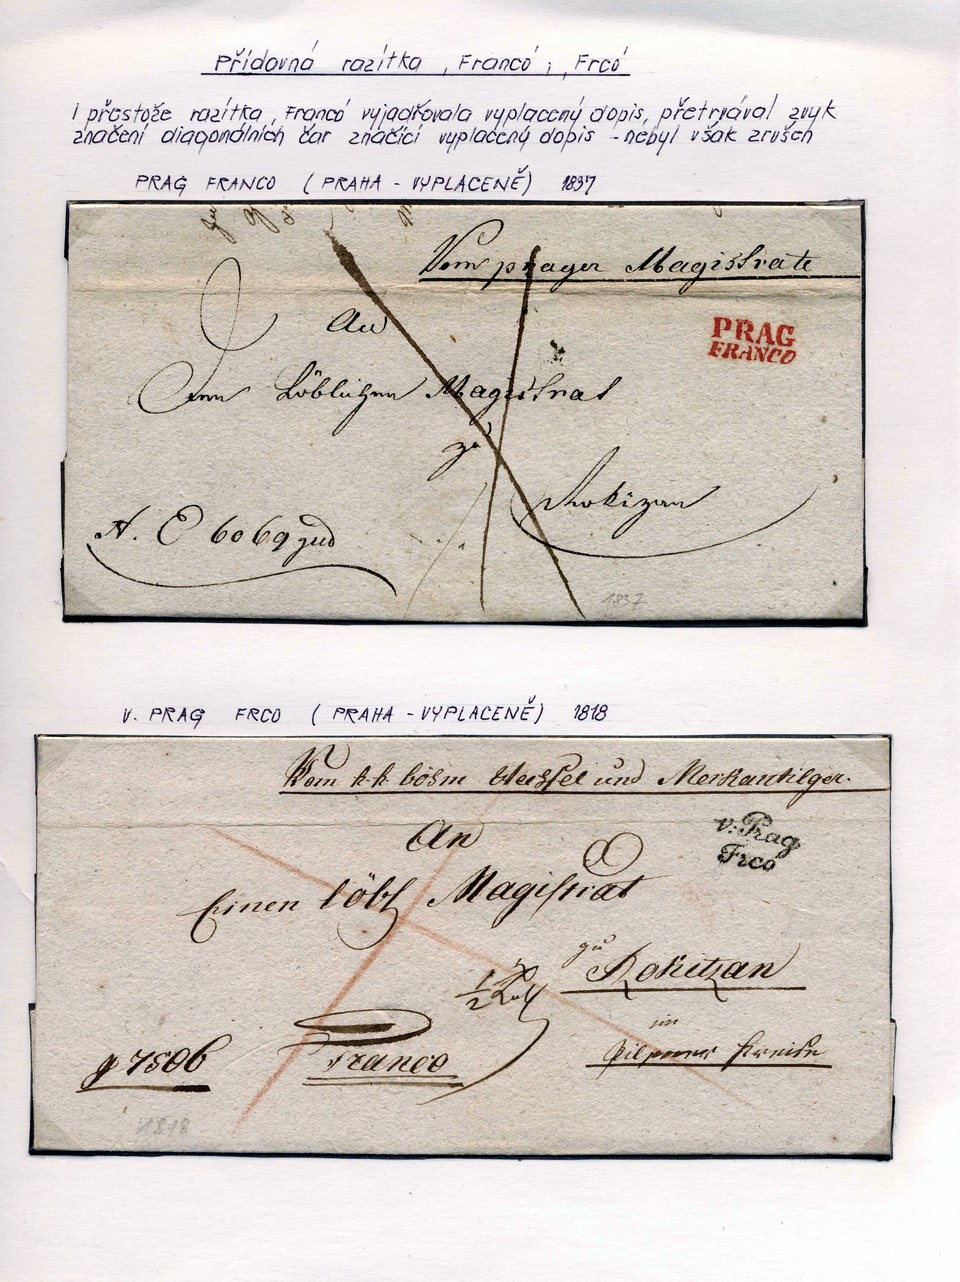 Přídavná razítka „Francó“, „Frcó“
I přestože razítka „Francó vyjadřovala vyplacený dopis, přetrvával zvyk
značení diagonálních čar značící vyplacený dopis - nebyl však zrušen
PRAG FRANCO (PRAHA - VYPLACENĚ) 1837
Vom prager Magistrate
PRAG
FRANCO
An
Den Löblichen Magistrat
zu
Rokizan
N. E 6069 jud
1837
V. PRAG FRCO (PRAHA - VYPLACENĚ) 1818
Vom k.k. böhm Wechsel und Merkantilger.
v: Prag
Frco
An
Einen löbl Magistrat
zu Rokitzan
1/2 Loth
im
Franco
Pilsner Kreise
7506
1818